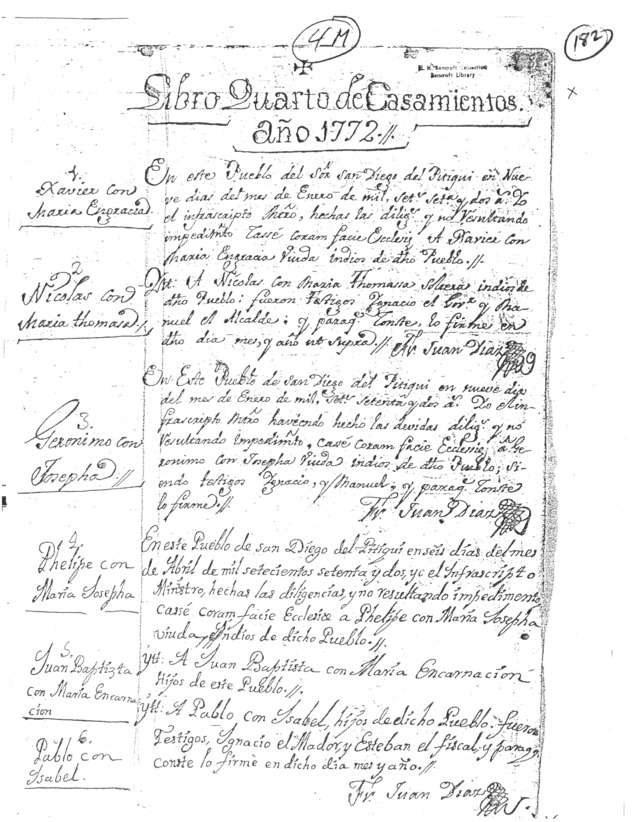 4M
182
H. H. Bancroft Collection
Bancroft Library
Libro Quarto de Casamientos.
año 1772.//.
1.
Xavier con
Maria Engracia.
En este Pueblo del Sor. San Diego del Pitiqui en Nue-
ve dias del mes de Enero de mil, Sets. Seta. y dos as. Yo
el infrascripto Mtro, hechas las diligs. y no Resultando
impedimto. Cassé coram facie Ecclesie, A Xavier con
Maria Engracia Viuda indios de dho Pueblo.//.
2.
Nicolas con
Maria thomasa.
Ytt: A Nicolas con Maria Thomassa Soltera indios de
dho Pueblo: fueron testigos Ignacio el Gor. y Ma-
nuel el Alcalde; y paraq. Conste, lo firme en
dho dia mes, y año ut Supra.//. Fr. Juan Diaz
3.
Geronimo con
Josepha.//
En Este Pueblo de San Diego del Pitiqui en nueve dias
del mes de Enero de mil, Sets. Setenta y dos as. Yo el in-
frascripto Mtro haviendo hecho las devidas diligs. y no
Resultando Impedimto. casé coram facie Ecclesie, a Ge-
ronimo con Josepha Viuda indios de dho Pueblo; Si-
endo testigos Ignacio, y Manuel; y paraq. Conste
lo firme.//.
Fr. Juan Diaz
4.
Phelipe con
María Josepha
En este Pueblo de san Diego del Pitiqui en seis dias del mes
de Abril de mil setecientos setenta y dos, yo el Infrascripto
Ministro, hechas las diligencias, y no resultando impedimento
Cassé coram facie Ecclesiæ a Phelipe con María Josepha
viuda, Indios de dicho Pueblo.//.
5.
Juan Baptizta
con María Encarna
cion
ytt: A Juan Baptista con María Encarnacion
Hijos de este Pueblo.//.
6.
Pablo con
Isabel.
ytt: A Pablo con Isabel, hijos de dicho Pueblo. fueron
Testigos, Ignacio el Mador, y Esteban el fiscal, y paraq.
Conste lo firme en dicho dia mes y año.//.
Fr. Juan Diaz